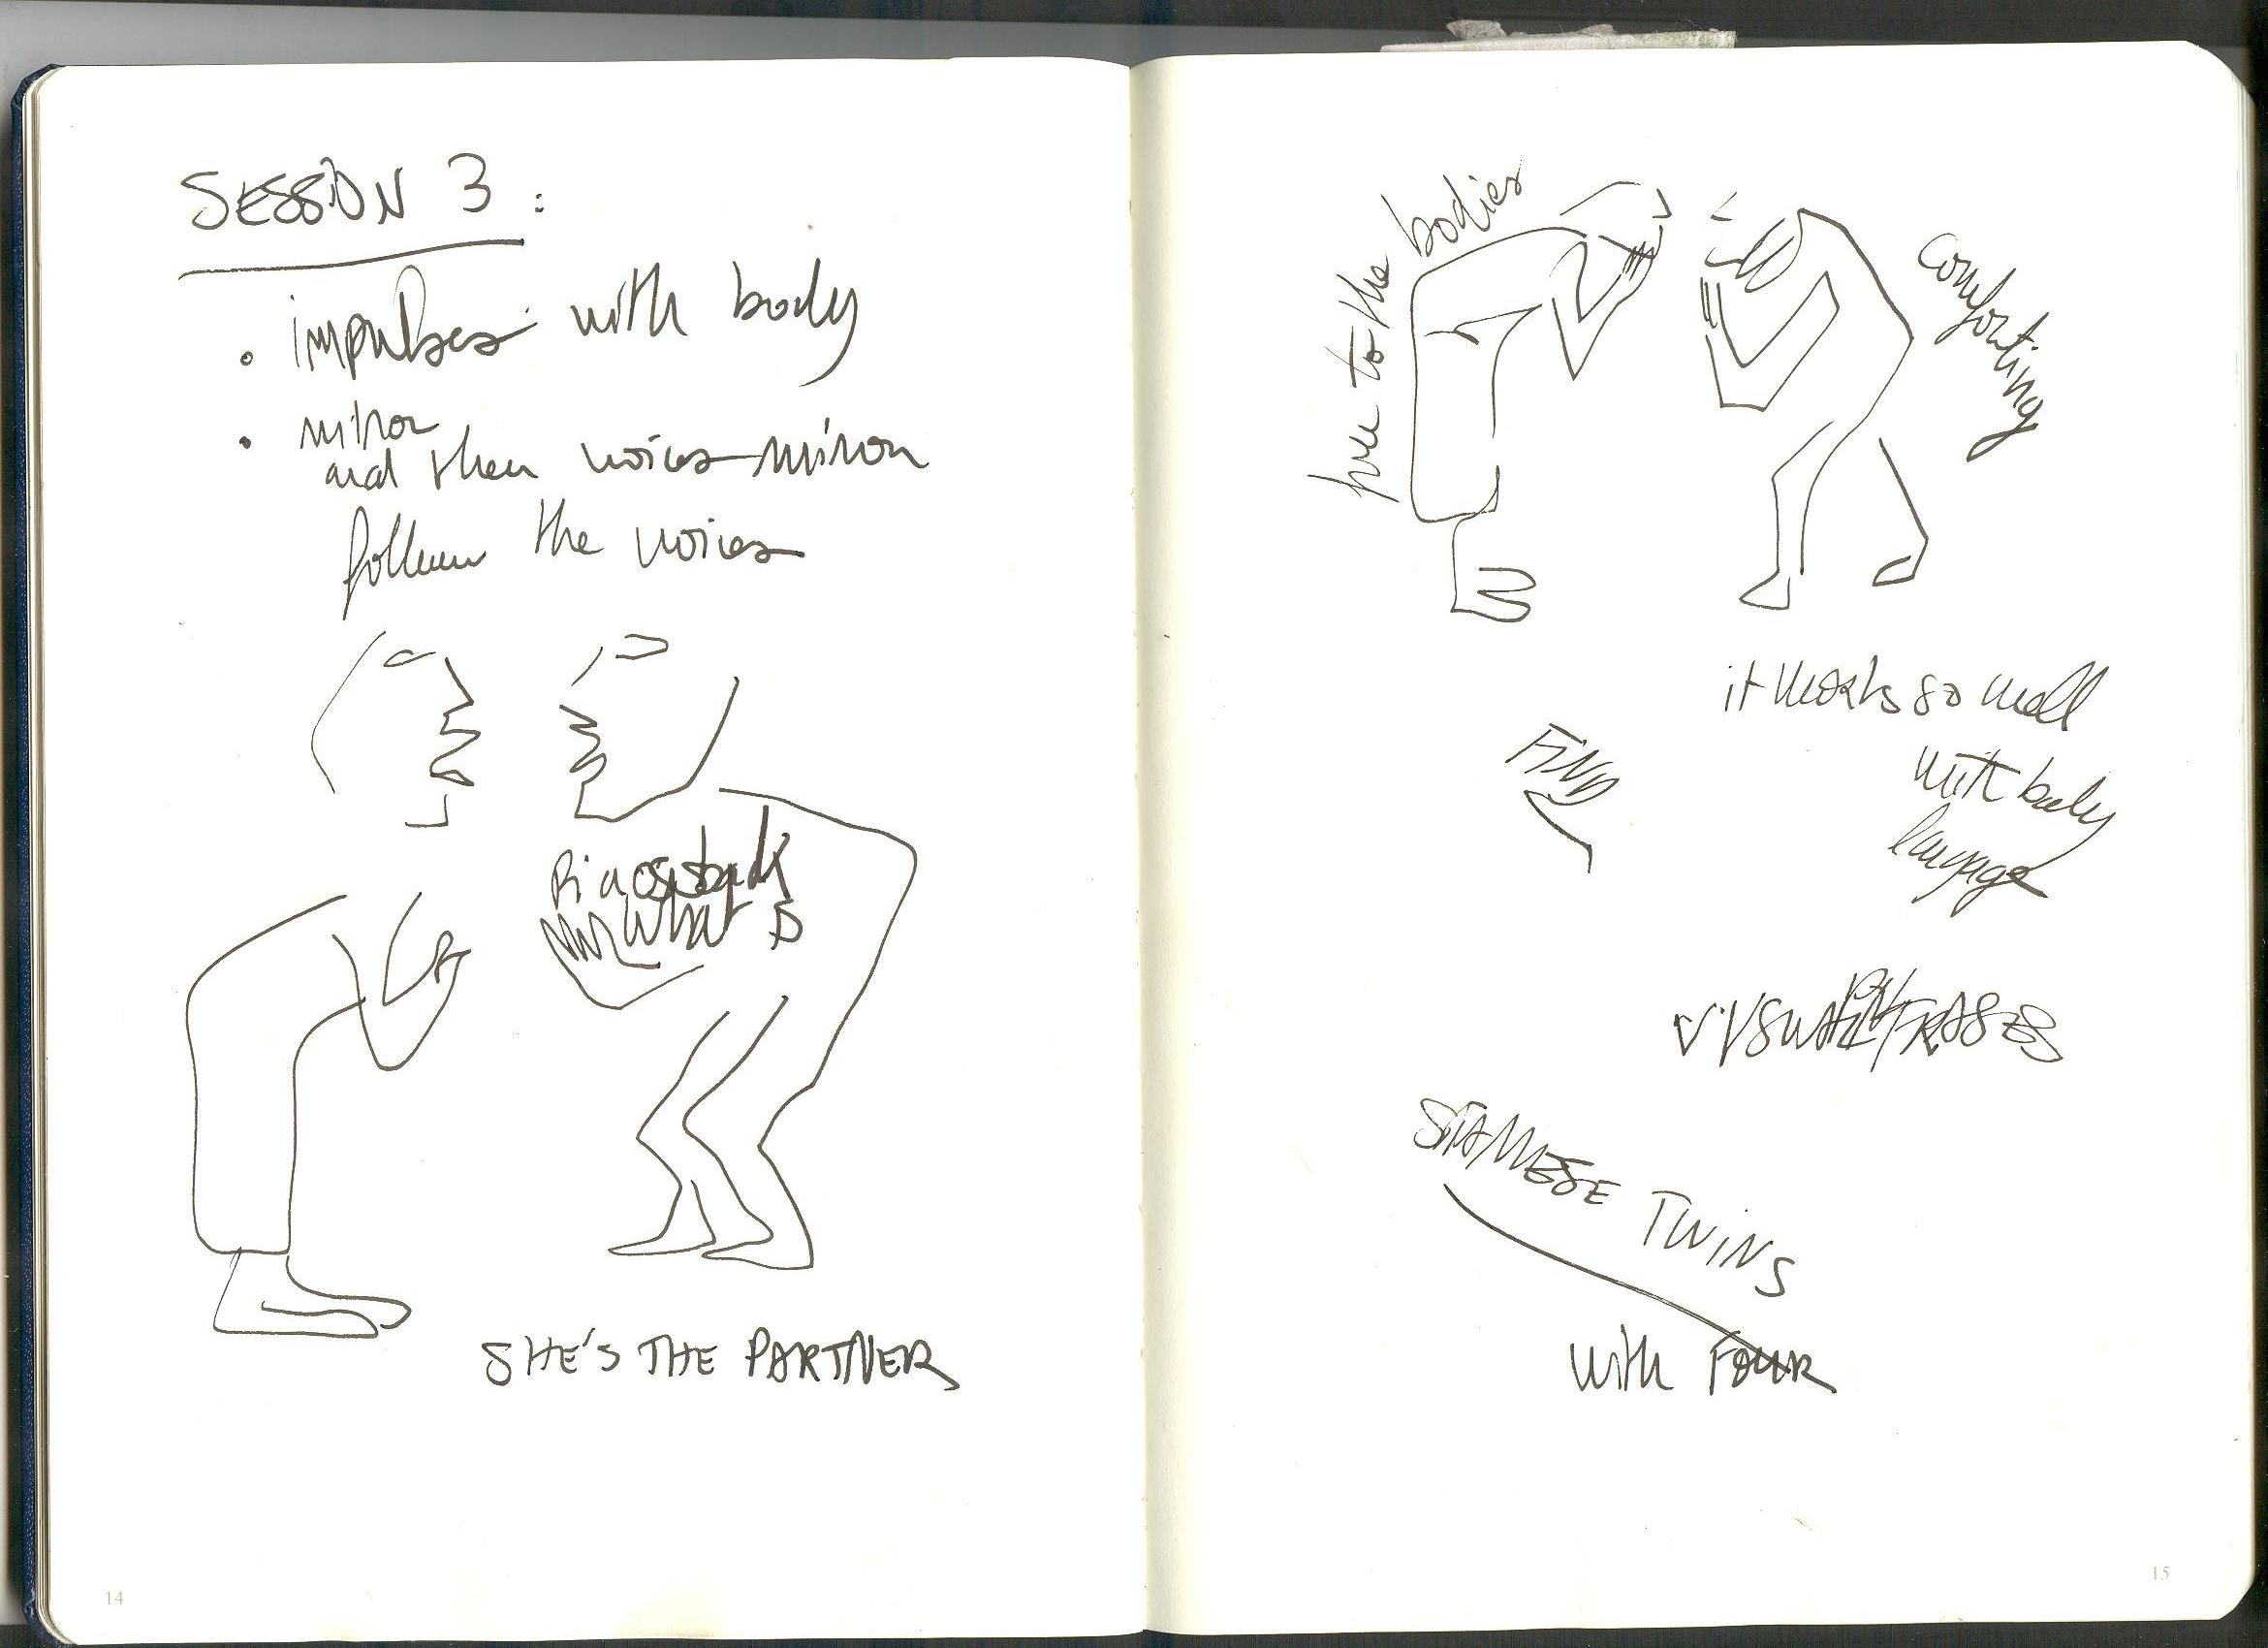 SESSION 3:
• impulses with body
• mirror
and then voices mirror
follow the voices
what is
SHE'S THE PARTNER
14
to the bodies
comforting
it works so well
with body
langage
FIND
VISUAL PHRASES
SIAMESE TWINS
with FOUR
15